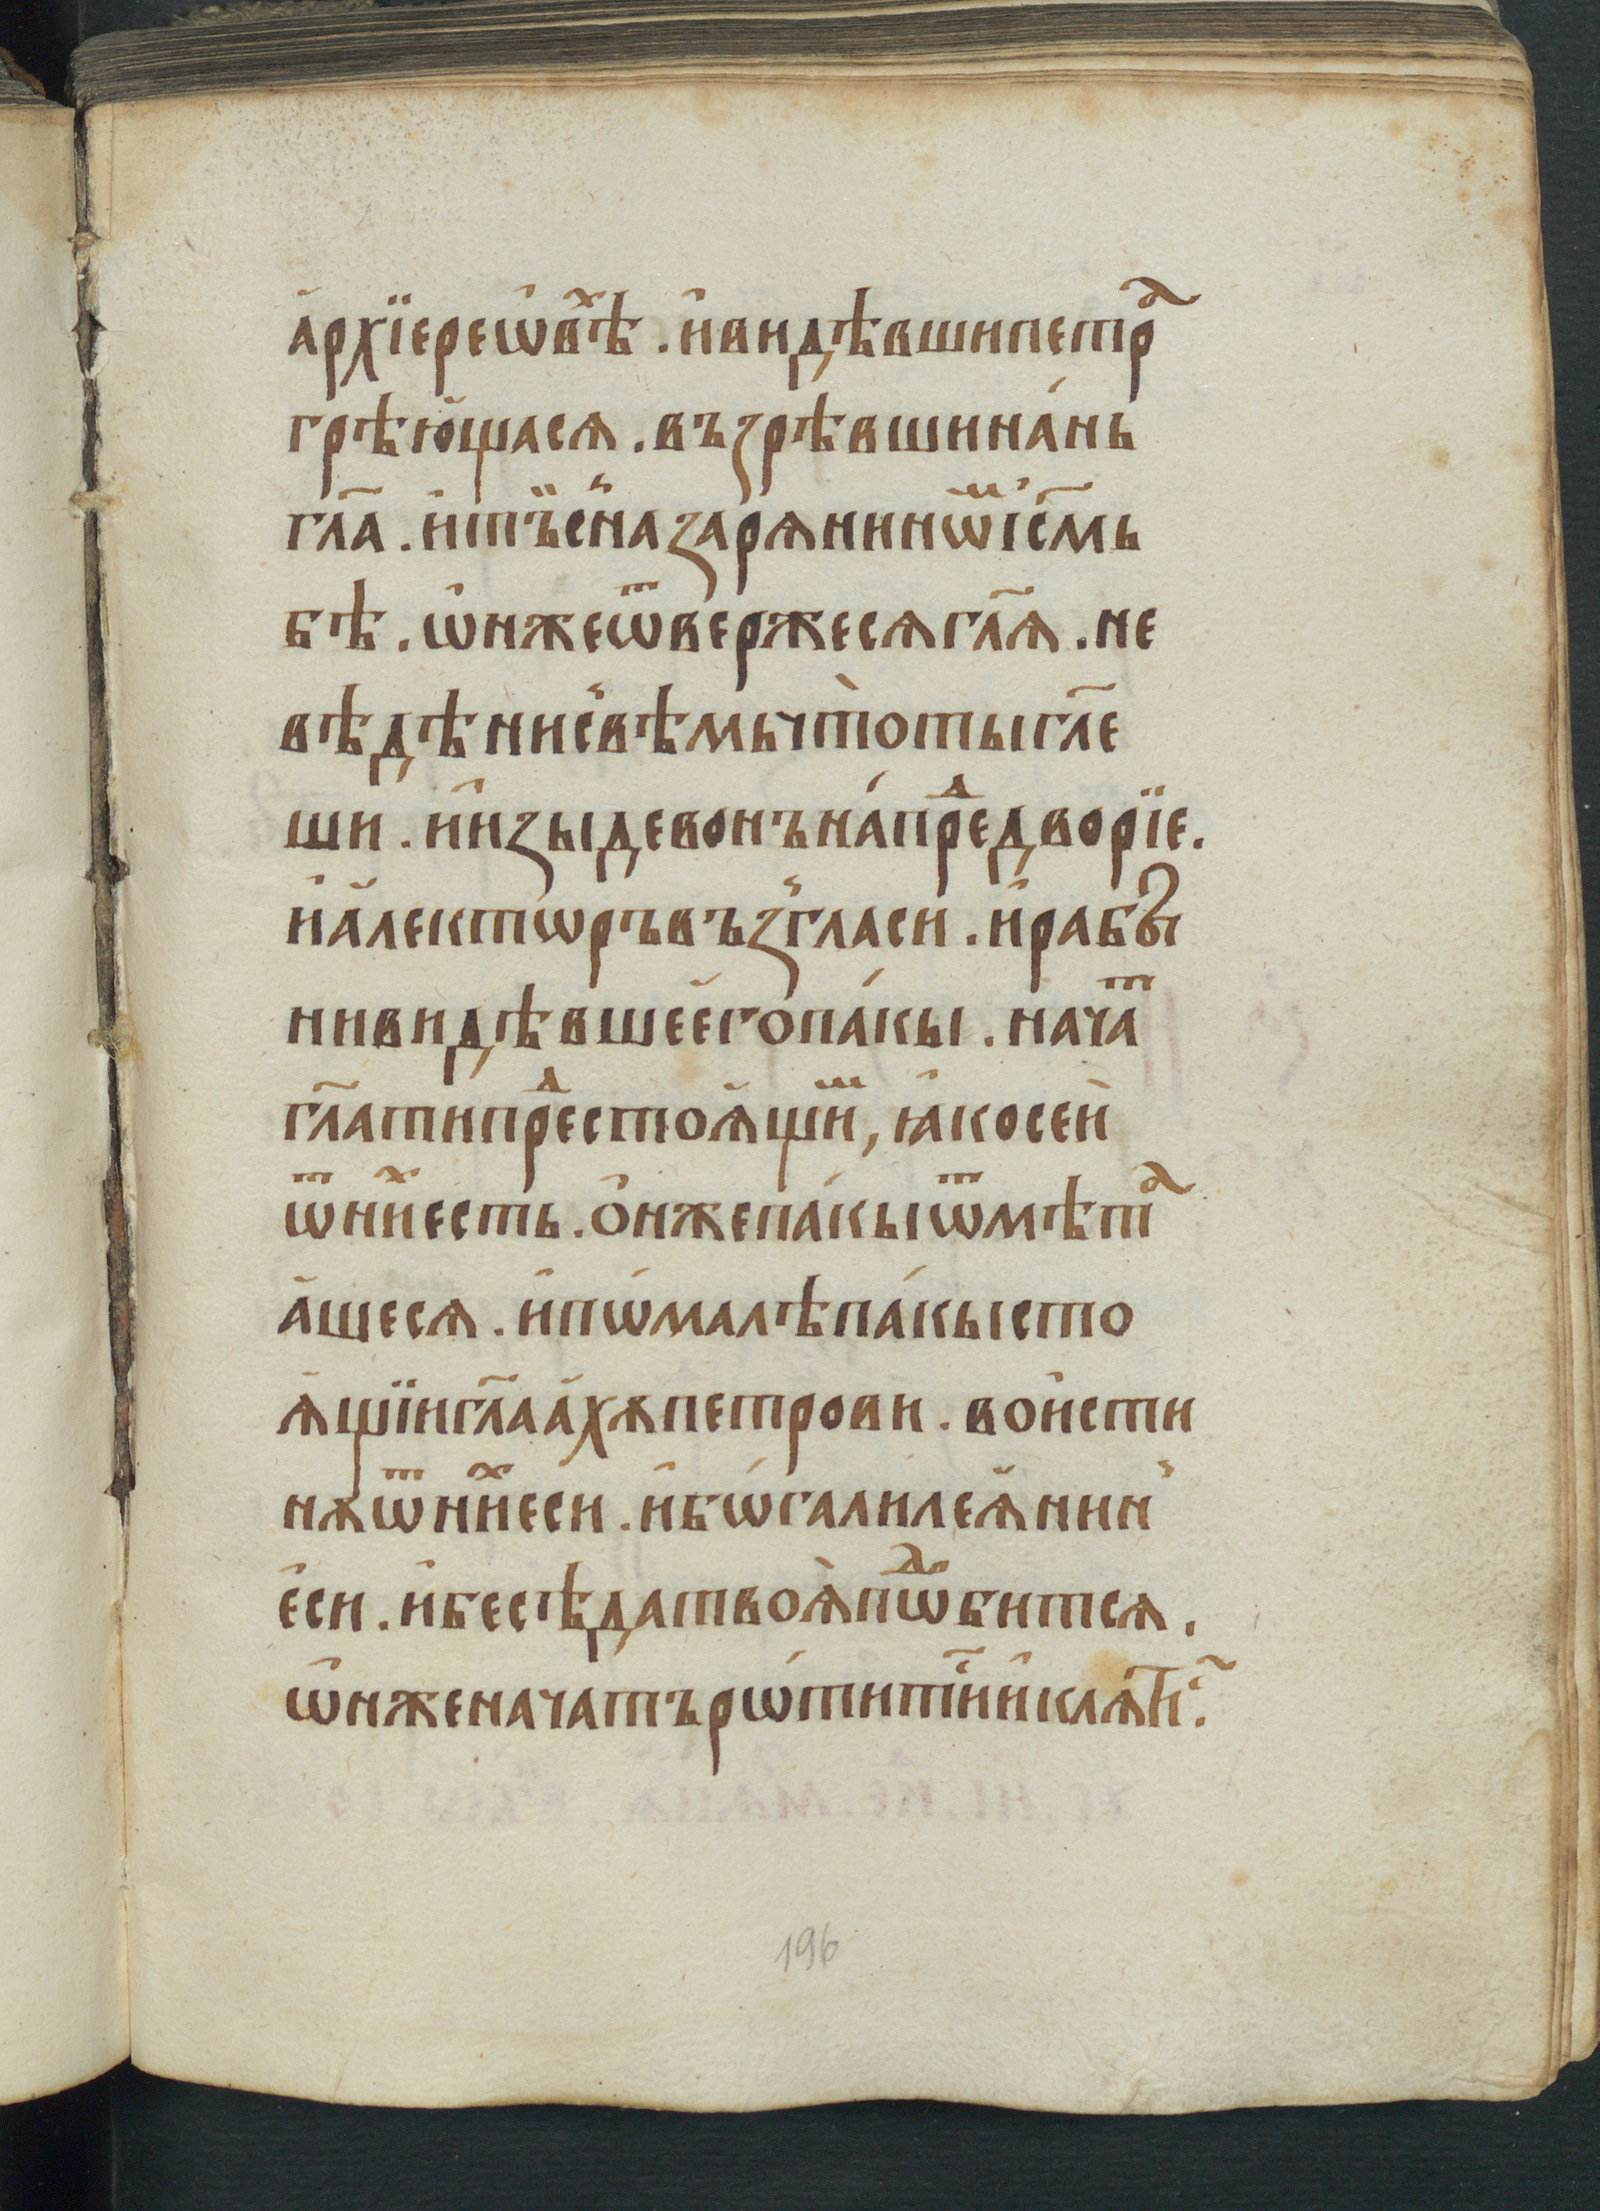 а҆рхїереѡ҆вⷯѣ . и҆видѣвшипетрⷶ
грѣю҆щасѧ . възрѣвшина́нь
гл҃а . и҆тꙑ̏с̾назарѧнинѡⷨі҆с҃мь
бѣ . ѡ҆нжеѿвержесѧгл҃ѧ . не
вѣдѣнис̾вѣмьчто̀тыгл҃е
ши . и҆изыдевонъна́преⷣдворїе.
и҆а҆лекторъвъз̾гласи . и҆рабꙑ
нивидѣвшее҆гопа́кы . начаⷮ
гл҃атипреⷣстоѧ҆щиⷨ, ꙗ҆косеи
ѿниⷯесть . ѻ҆нжепа́кыѿмѣтⷶ
а҆шесѧ . и҆пѡ́малѣпа́кысто
ѧ҆щїигл҃аа҆хѫпетрови . вои҆сти
нѫѿниⷯеси . и҆бѡ́галилеѧ҆нин̾
е҆си . и҆бесѣдатвоѧ̀пѡⷣбитсѧ .
ѡ҆нженачатърѡ́титиⷭ҇и҆клѧ́тиⷭ҇.
196